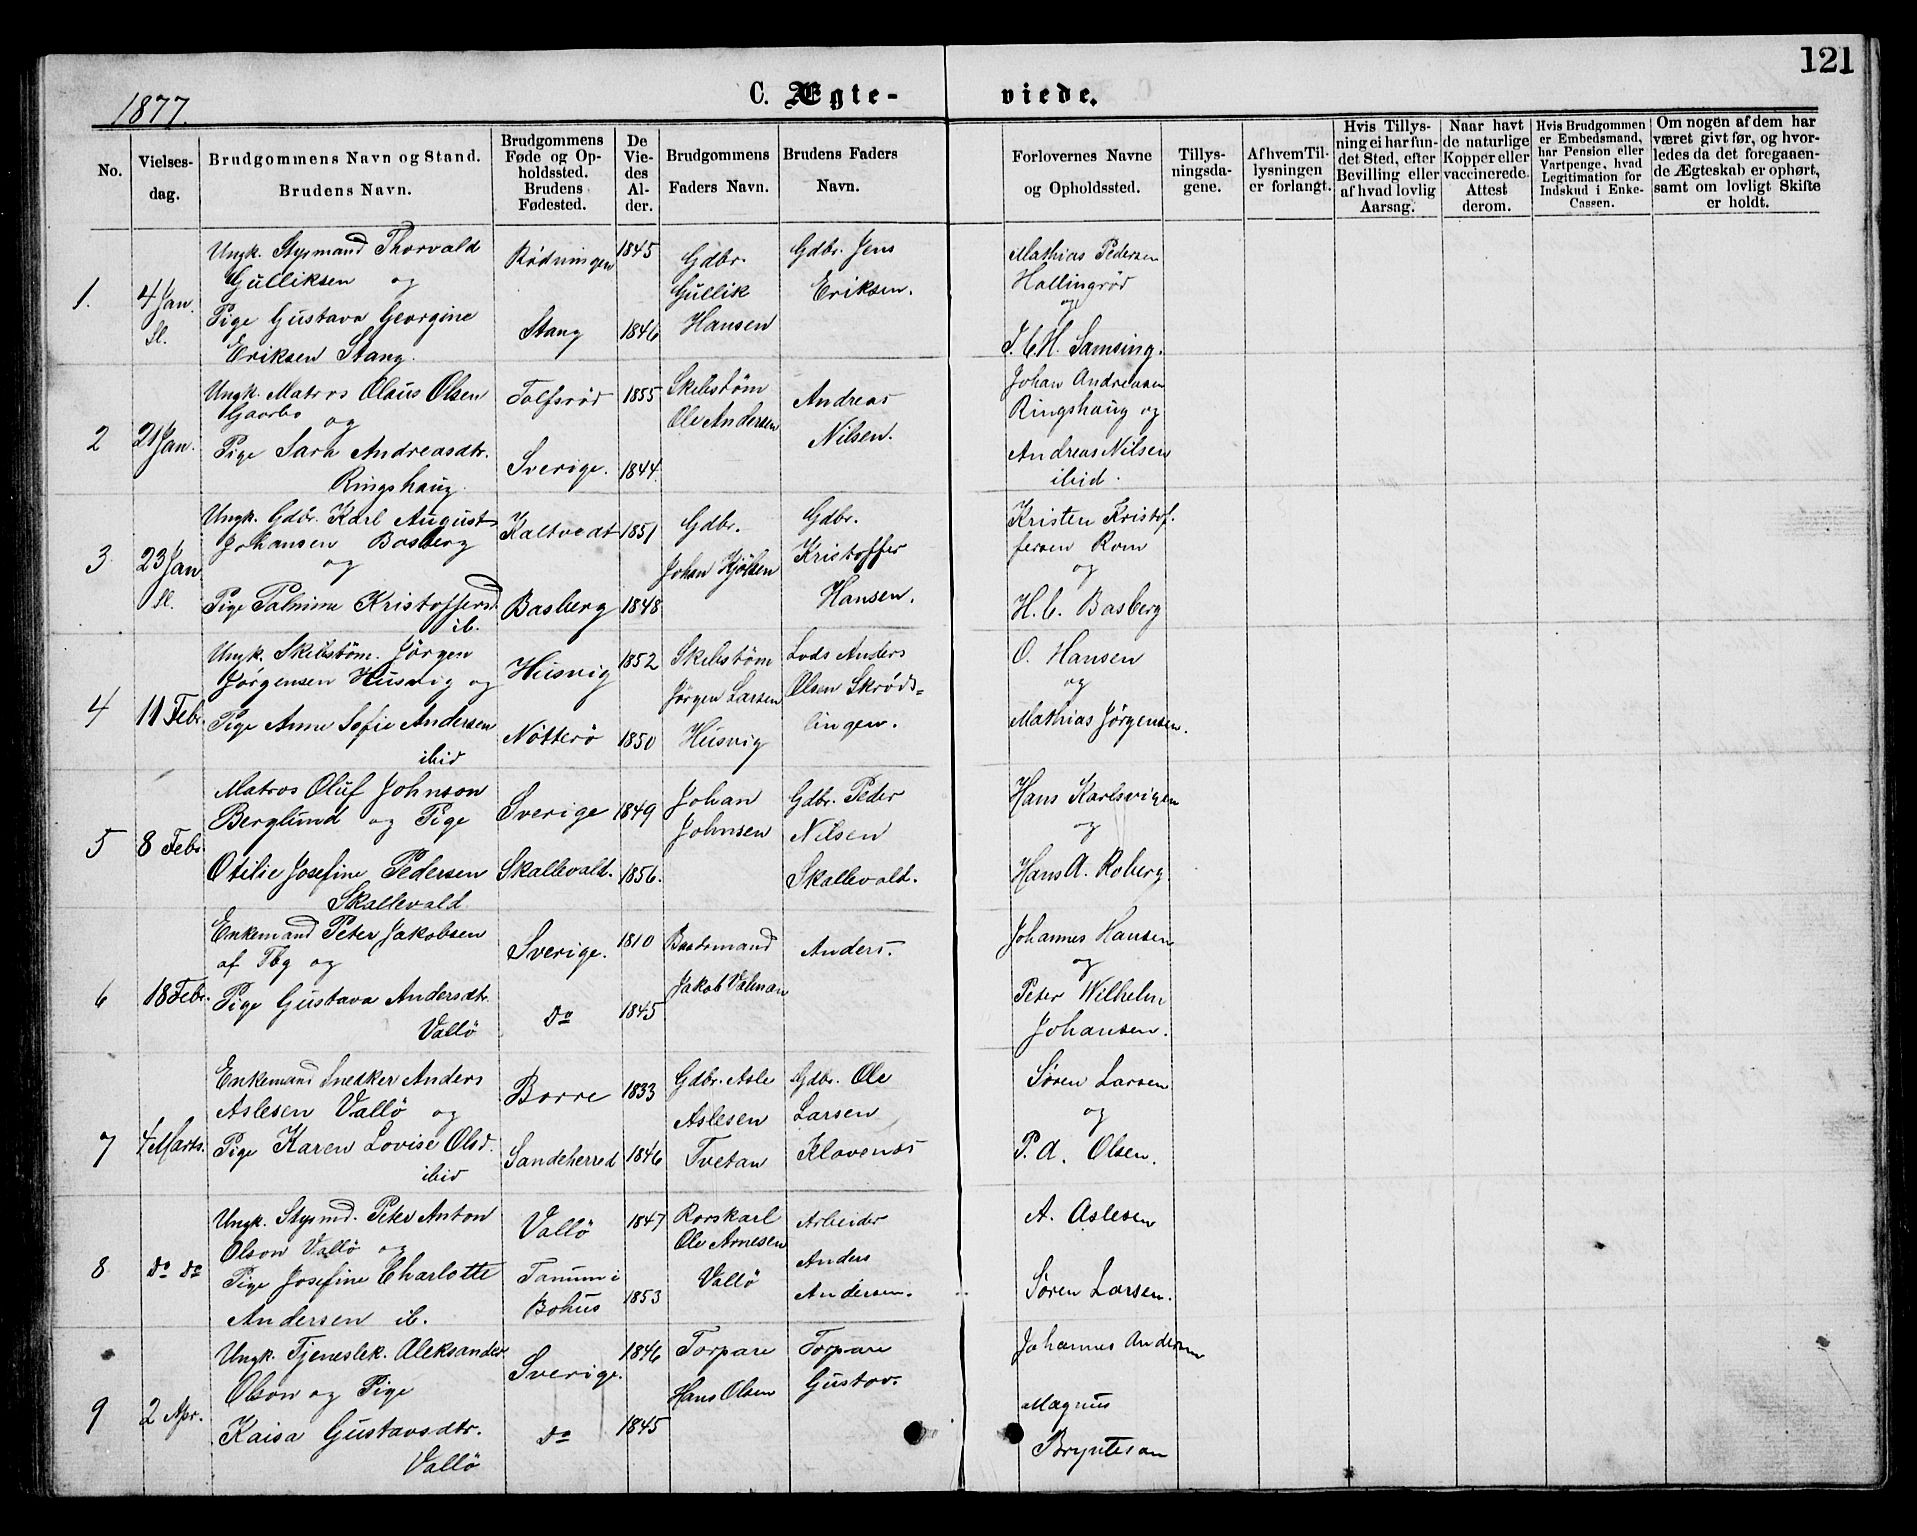 121
1877.
C. Ægte- viede.
No.
Vielses-
dag.
Brudgommens Navn og Stand.
Brudens Navn.
Brudgommens
Føde og Op-
holdssted.
Brudens
Fødested.
De
Vie-
des
Al-
der.
Brudgommens
Faders Navn.
Brudens Faders
Navn.
Forlovernes Navne
og Opholdssted.
Tillys-
ningsda-
gene.
Af hvem Til-
lysningen
er forlangt.
Hvis Tillys-
ning ei har fun-
det Sted, efter
Bevilling eller
af hvad lovlig
Aarsag.
Naar havt
de naturlige
Kopper eller
vaccinerede.
Attest
derom.
Hvis Brudgommen
er Embedsmand,
har Pension eller
Vartpenge, hvad
Legitimation for
Indskud i Enke-
Cassen.
Om nogen af dem har
været givt før, og hvor-
ledes da det foregaaen-
de Ægteskab er ophørt,
samt om lovligt Skifte
er holdt.
1.
4 Jan.
Sl.
Ungk. Stysmand Thorvald
Gulliksen og
Pige Gustava Georgine
Eriksen Stang.
Rødningen
Stang
1845
1846
Gdbr.
Gullik
Hansen
Gdbr. Jens
Eriksen.
Mathias Pedersen
Hallingrød
og
J. C. H. Samsing.
2
21 Jan.
Ungk. Matros Olaus Olsen
Gaarbo og
Pige Sara Andreasdtr.
Ringshaug.
Tolfsrød
Sverige.
1855
1844.
Skibstøm
Ole Andersen
Andreas
Nilsen.
Johan Andreasen
Ringshaug og
Andreas Nilsen
ibid.
3
23 Jan
Sl.
Ungk. Gdbr. Karl August
Johansen Basberg
og
Pige Palmine Kristoffersd.
ib.
Kaltvedt
Basberg
1851
1848
Gdbr.
Johan Kjølsen
Gdbr.
Kristoffer
Hansen.
Kristen Kristof.
fersen Rom
og
H. C. Basberg
4
11 Febr.
Ungk. Skibstøm. Jørgen
Jørgensen Husvig og
Pige Anne Sofie Andersen
ibid
Husvig
Nøtterø
1852
1850
Skibstøm
Jørgen Larsen
Husvig
Lods Anders
Olsen Skrøds-
lingen.
O. Hansen
og
Mathias Jørgensen.
5
8 Febr
Matros Oluf Johnson
Berglund og Pige
Otilie Josefine Pedersen
Skallevald
Sverige
Skallevald.
1849
1856.
Johan
Johnsen
Gdbr. Peder
Nilsen
Skallevold.
Hans Karlsvigen
og
Hans A. Roberg.
6
18 Febr.
Enkemand Peter Jakobsen
af Tbg og
Pige Gustava Andersdtr.
Vallø
Sverige.
Do
1810
1845
Baadsmand
Jakob Valman
Anders.
Johannes Hansen
og
Peter Wilhelm
Johansen.
7
4 Marts.
Enkemand Snedker Anders
Aslesen Vallø og
Pige Karen Lovise Olsd.
ibid
Borre
Sandeherred
1833
1846
Gdbr. Asle
Aslesen
Tvetan
Gdbr. Ole
Larsen
Klavenæs
Søren Larsen
og
P. A. Olsen.
8
Do Do
Ungk. Stysmd. Peter Anton
Olson Vallø og
Pige Josefine Charlotte
Andersen ib.
Vallø
Tanum i
Bohus
1847
1853
Rorskarl
Ole Arnesen
Vallø
Arbeider
Anders
Andersen.
A. Aslesen
Søren Larsen.
9
2 Apr.
Ungk. Tjenestek. Aleksander
Olson og Pige
Kaisa Gustavsdtr.
Vallø
Sverige.
Do
1846
1845
Torpare
Hans Olsen
Torpare
Gustav.
Johannes Andersen
Magnus
Bryntesan